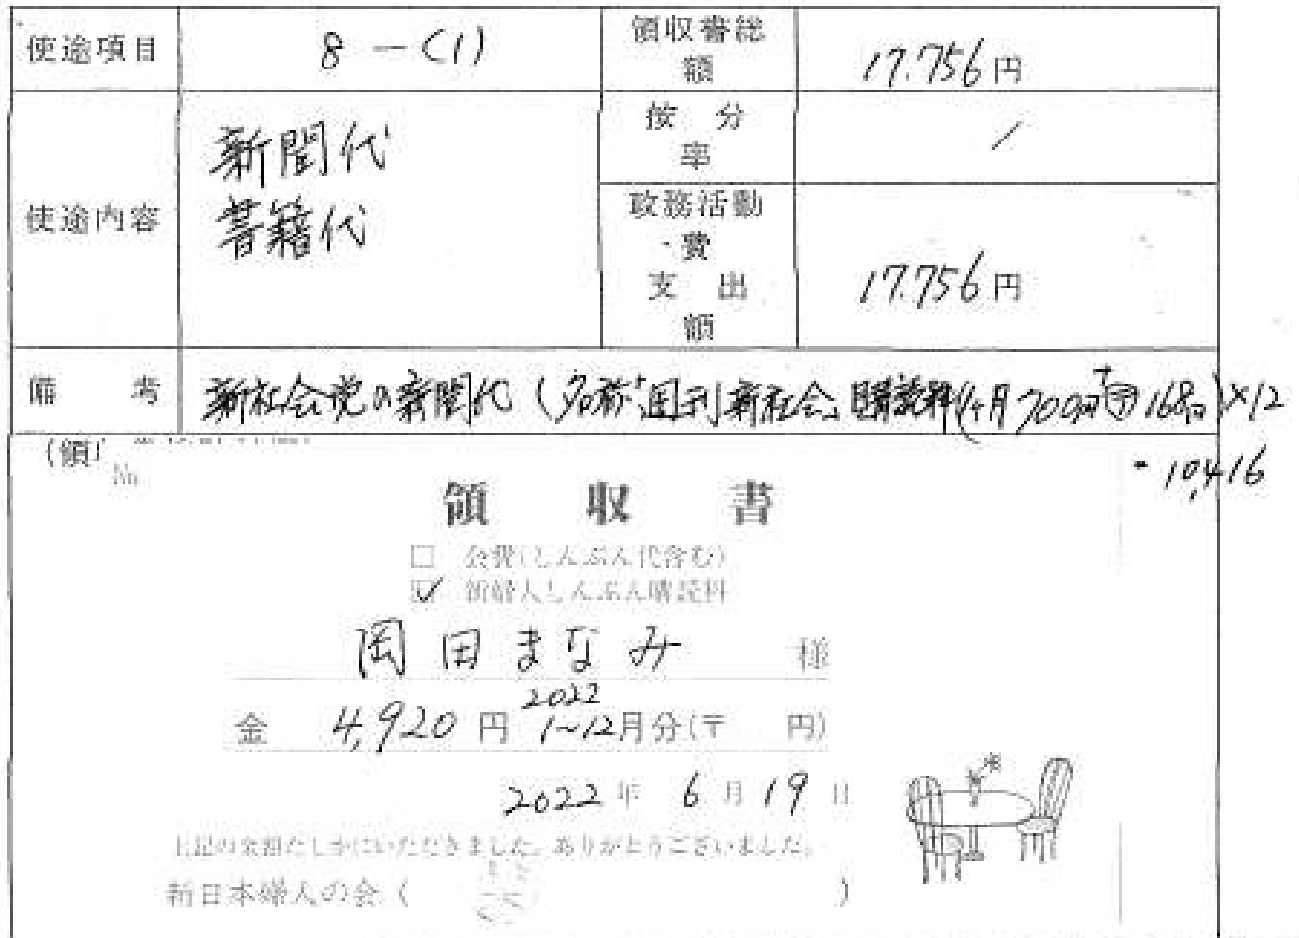 使途項目 8-(1) 領収書総額 17.756円
按分率 /
使途内容 新聞代
書籍代
政務活動費支出額 17.756円
備考 新社会党の新聞代(名称「週刊新社会」購読料(1ヶ月700円+〒168円)×12
=10,416
(領)
No.
領収書
□ 会費(しんぶん代含む)
☑ 新婦人しんぶん購読料
岡田まなみ 様
2022
金 4,920円 1~12月分(〒 円)
2022年 6月19日
上記の金額たしかにいただきました。ありがとうございました。
新日本婦人の会( )